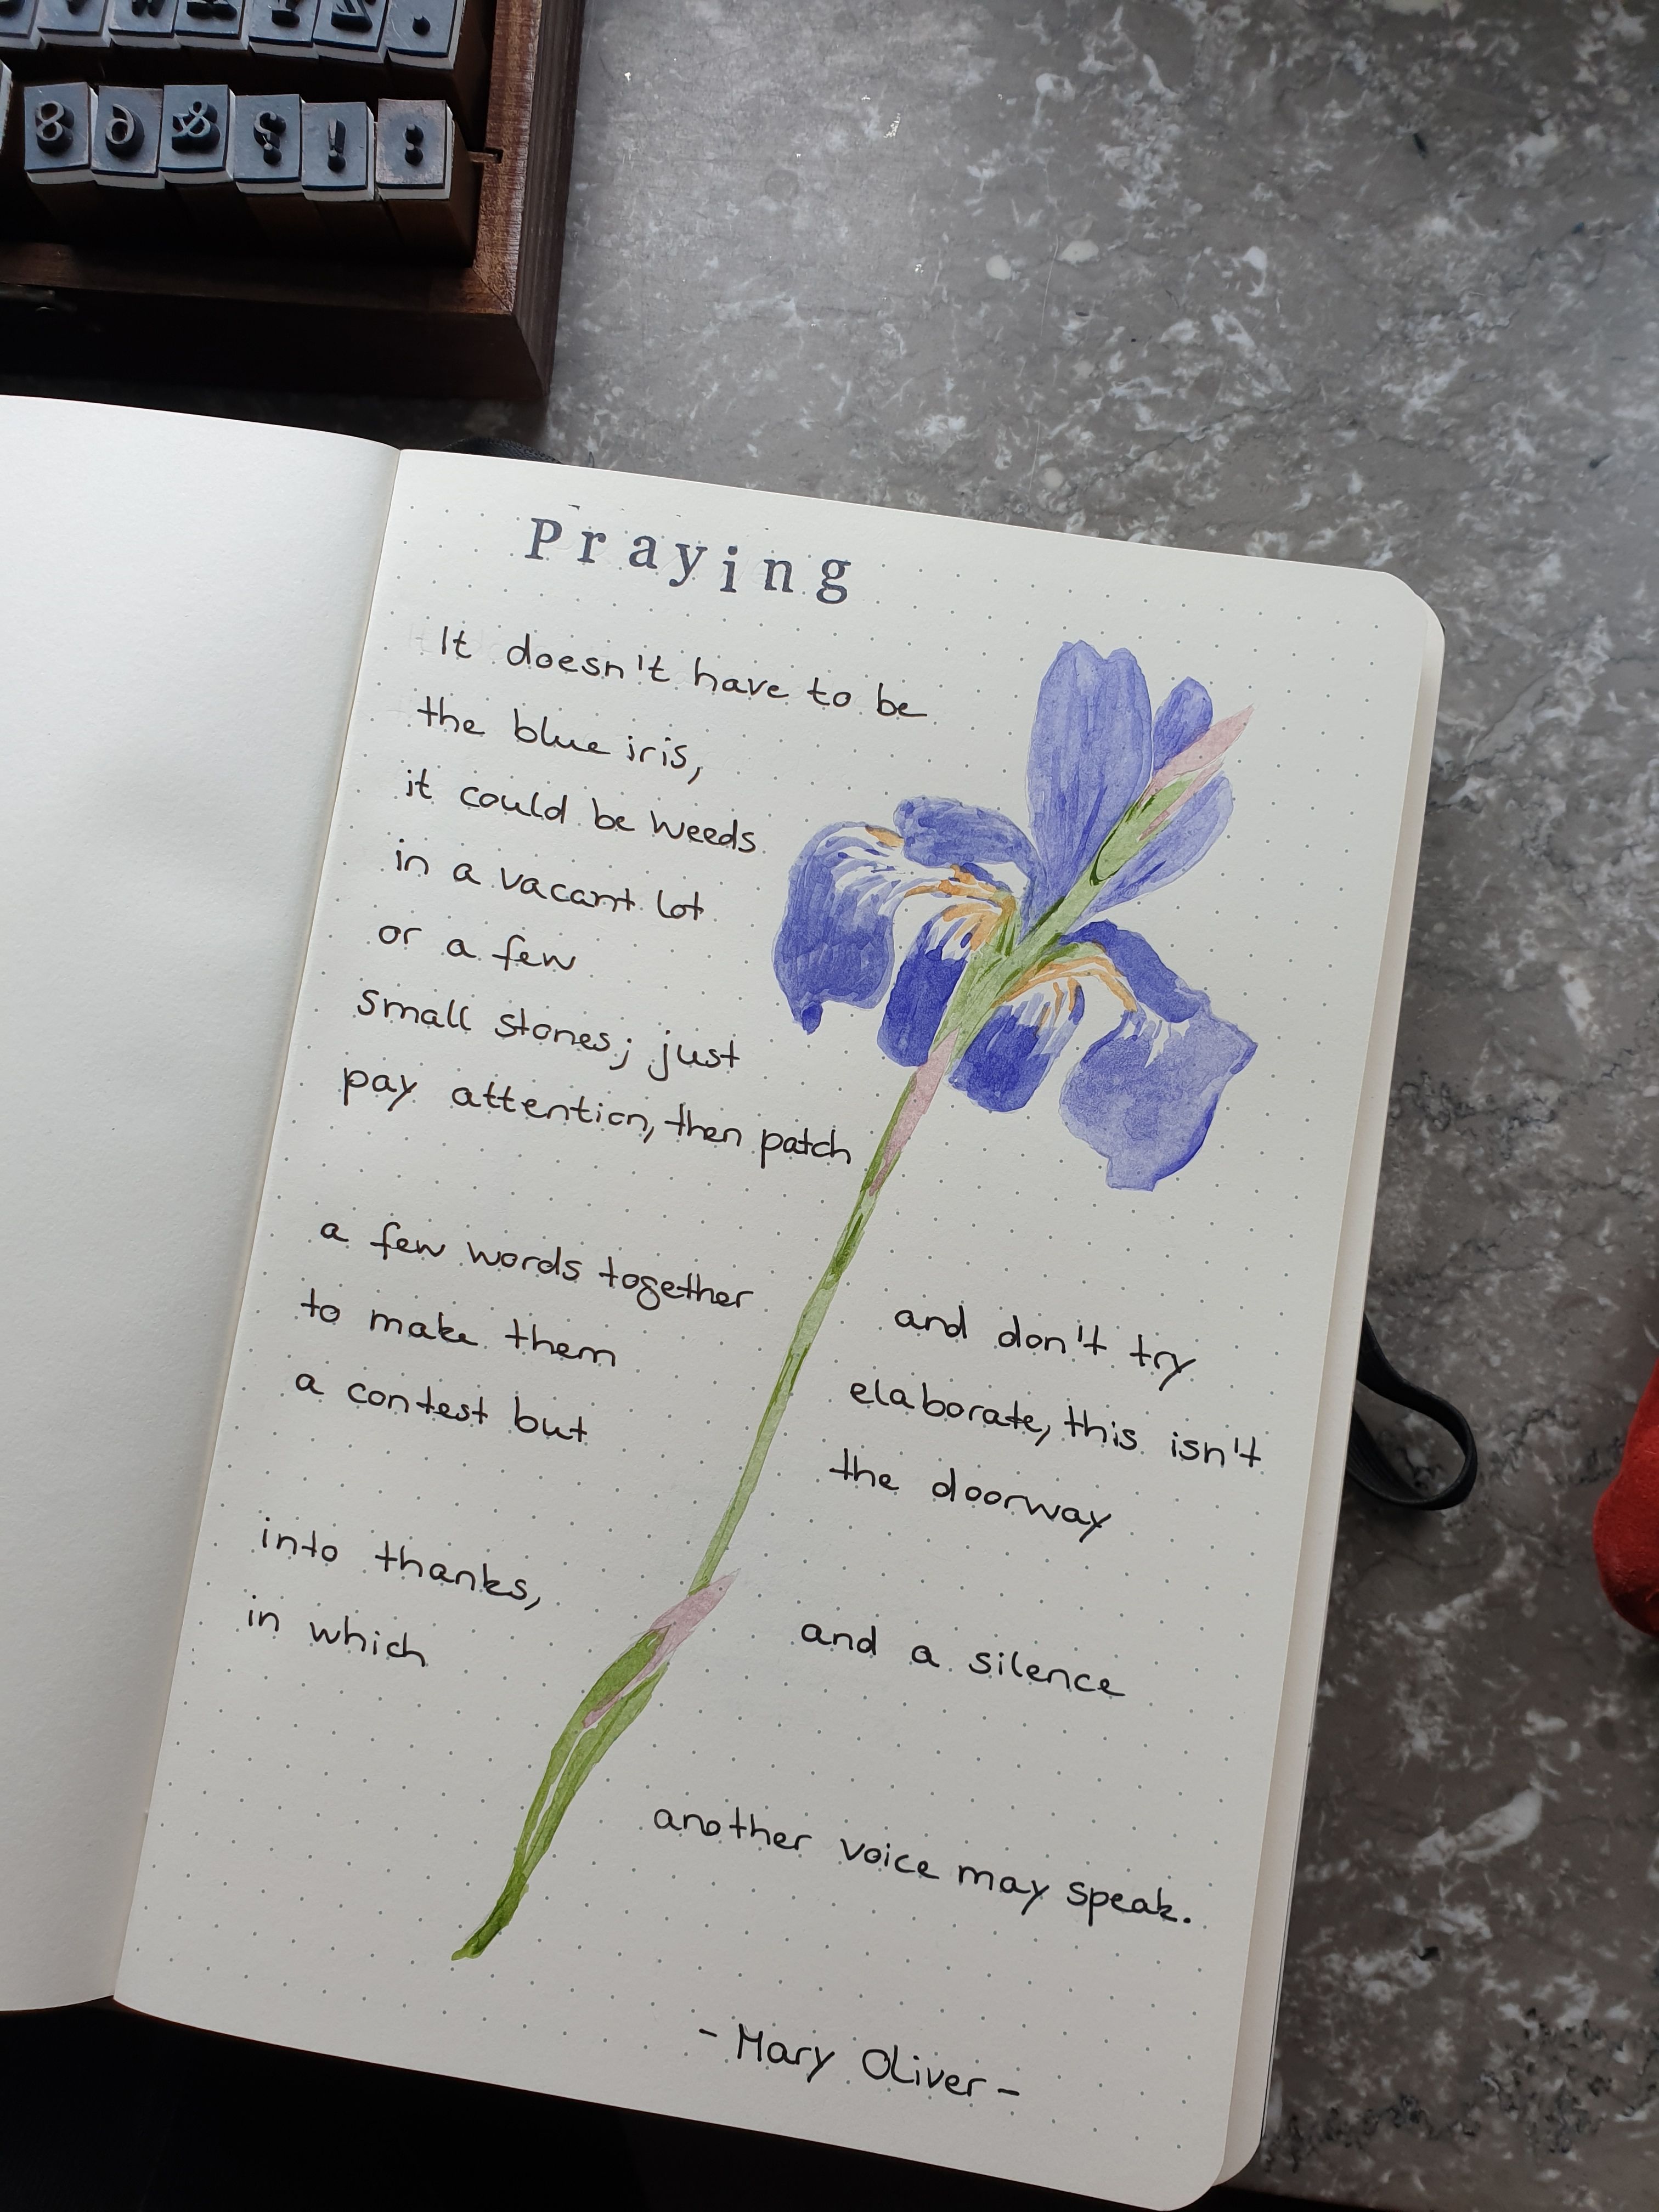 8 6 & ? ! :
Praying
It doesn't have to be
the blue iris,
it could be weeds
in a vacant lot
or a few
small stones; just
pay attention, then patch
a few words together
and don't try
to make them
elaborate, this isn't
a contest but
the doorway
into thanks,
and a silence
in which
another voice may speak.
- Mary Oliver -